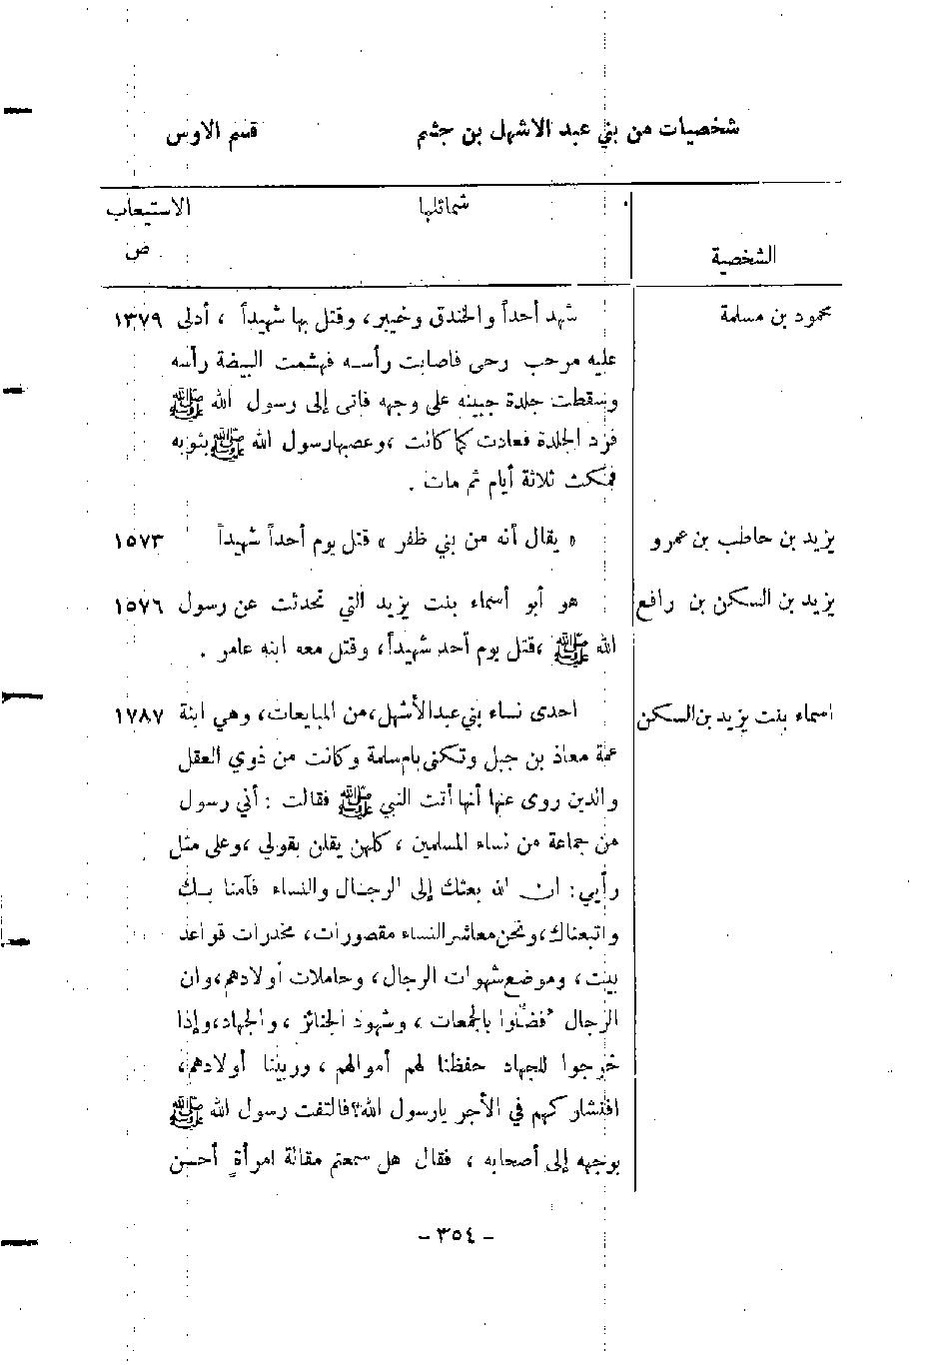 شخصيات من بني عبد الاشهل بن جشم قسم الاوس
الشخصية شمائلها الاستيعاب
ص
محمود بن مسلمة شهد أحداً والخندق وخيبر، وقتل بها شهيداً ، أدلى ١٣٧٩
عليه مرحب رحى فاصابت رأسه فهشمت البيضة رأسه
وسقطت جلدة جبينه على وجهه فاتى إلى رسول الله ﷺ
فرد الجلدة فعادت كما كانت ،وعصبها رسول الله ﷺ بثوبه
فمكث ثلاثة أيام ثم مات .
يزيد بن حاطب بن عمرو « يقال أنه من بني ظفر » قتل يوم أحداً شهيداً ١٥٧٣
يزيد بن السكن بن رافع هو أبو أسماء بنت يزيد التي تحدثت عن رسول ١٥٧٦
الله ﷺ ،قتل يوم أحد شهيداً، وقتل معه ابنه عامر .
اسماء بنت يزيد بن السكن احدى نساء بني عبد الأشهل،من المبايعات، وهي ابنة ١٧٨٧
عمة معاذ بن جبل وتكنى بام سلمة وكانت من ذوي العقل
والدين روى عنها أنها أتت النبي ﷺ فقالت : أني رسول
من جماعة من نساء المسلمين ، كلهن يقلن بقولي ،وعلى مثل
رأيي: ان الله بعثك إلى الرجال والنساء فآمنا بك
واتبعناك،ونحن معاشر النساء مقصورات، مخدرات قواعد
بيت، وموضع شهوات الرجال، وحاملات أولادهم،وان
الرجال فُضّلوا بالجمعات ، وشهود الجنائز ، والجهاد،وإذا
خرجوا للجهاد حفظنا لهم أموالهم ، وربينا أولادهم،
افنشاركهم في الأجر يارسول الله؟فالتفت رسول الله ﷺ
بوجهه إلى أصحابه ، فقال هل سمعتم مقالة امرأةٍ أحسن
- ٣٥٤ -